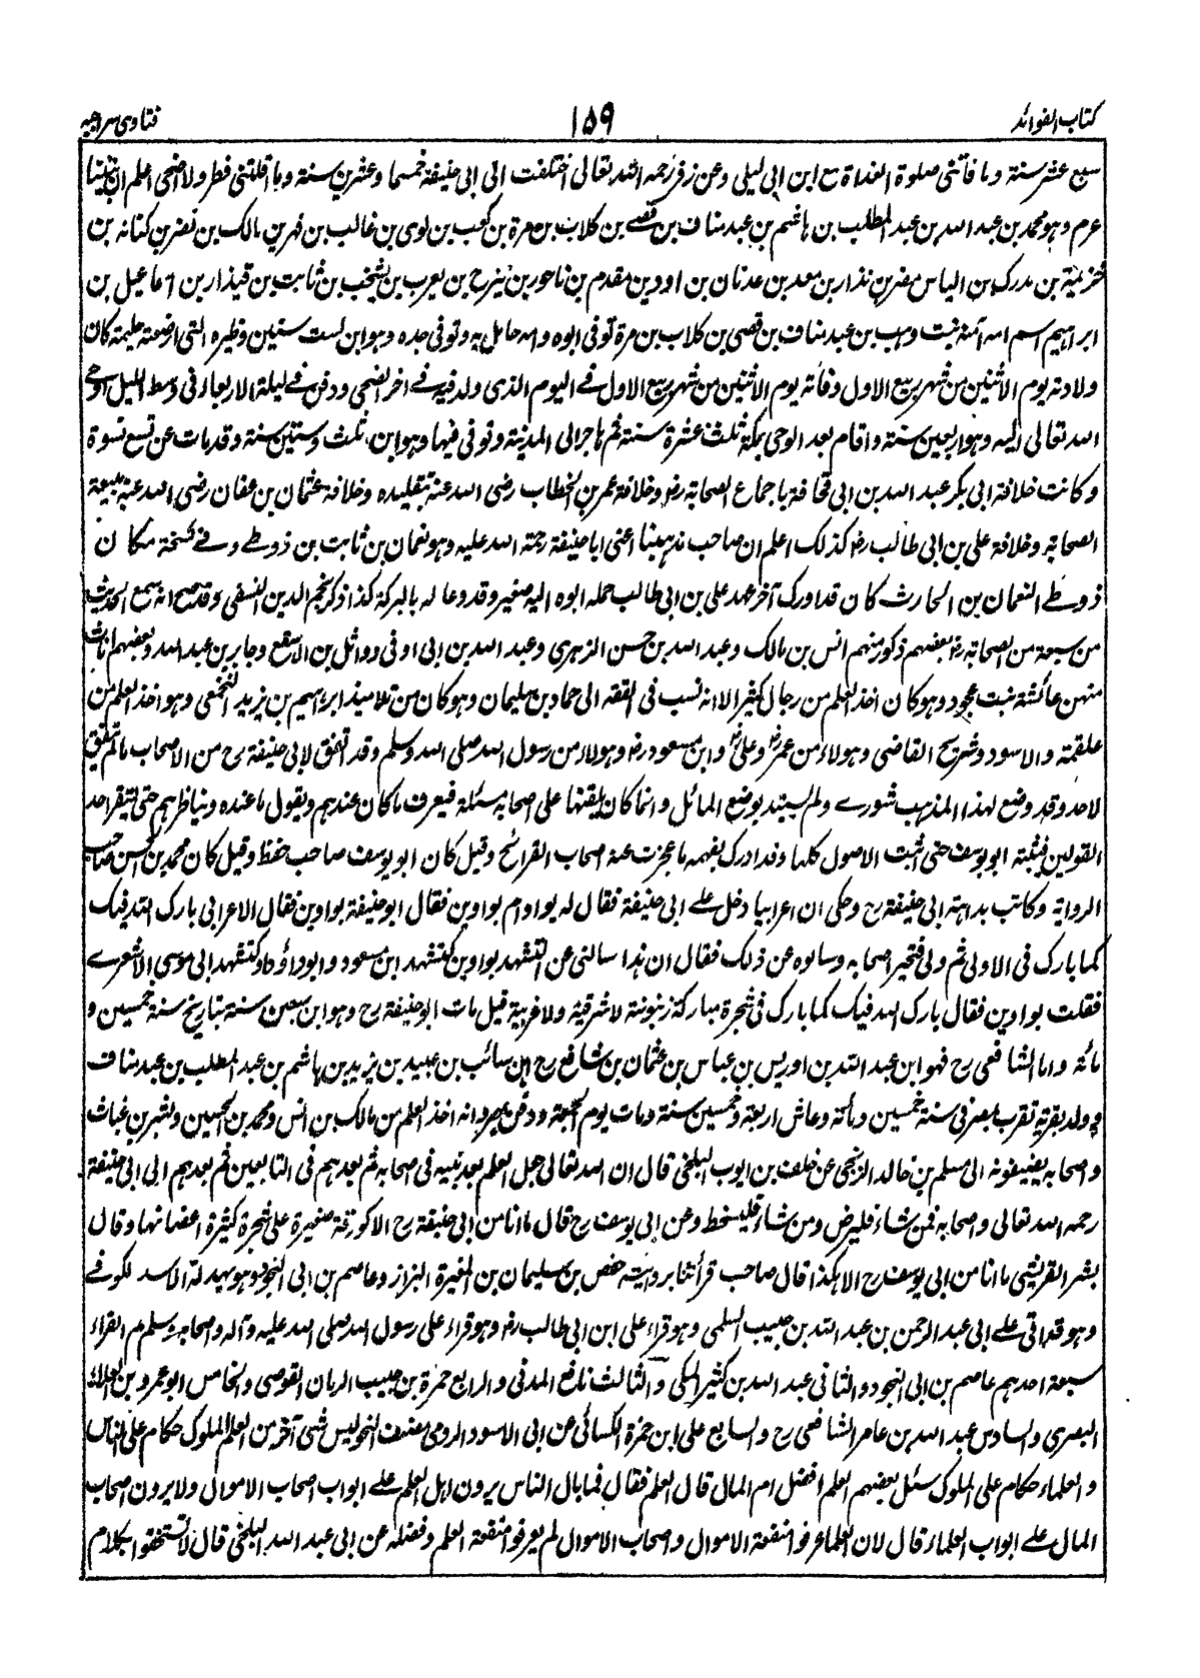 كتاب الفوائد
١٥٩
فتاوى سراجيه
سبع عشر سنة وما فاتنى صلوة الغداة مع ابن ابى ليلى وعن زفر رحمه الله تعالى اختلفت الى ابى حنيفة خمسا وعشرين سنة وما فاتنى فطر ولا اضحى اعلم ان نبينا
عرم وهو محمد بن عبد الله بن عبد المطلب بن هاشم بن عبد مناف بن قصے بن كلاب بن مرة بن كعب بن لوى بن غالب بن فهر بن مالك بن نضر بن كنانه بن
خزيمة بن مدرك بن الياس مضر بن نذار بن معد بن عدنان بن اود بن مقدم بن ناحور بن يزرح بن يعرب بن يشخب بن ثابت بن قيذار بن اسماعيل بن
ابراهيم اسم امه آمنة بنت وهب بن عبد مناف بن قصى بن كلاب بن مرة توفى ابوه وامه حامل به وتوفى جده وهو ابن لست سنين وظيره التى ارضعته حليمة كان
ولادته يوم الاثنين من شهر ربيع الاول وفاته يوم الاثنين من شهر ربيع الاول فے اليوم الذى ولد فيه فے اخر الضحى ودفن فے ليلة الاربعاء فى وسط الليل اوحى
الله تعالى اليه وهو اربعين سنة واقام بعد الوحى بمكة ثلث عشرة سنة ثم هاجر الى المدينة وتوفى فيها وهو ابن ثلث وستين سنة وقد مات عن تسع نسوة
وكانت خلافة ابى بكر عبد الله بن ابى قحافة باجماع الصحابة رض وخلافة عمر بن الخطاب رضى الله عنه بتقليده وخلافة عثمان بن عفان رضى الله عنه ببيعة
الصحابة وخلافة على بن ابى طالب رض كذلك اعلم ان صاحب مذهبنا اعنى ابا حنيفة رحمة الله عليه وهو نعمان بن ثابت بن ذوطے وفے نسخة مكان
ذوطے النعمان بن الحارث كان قد ادرك آخر عهد على بن ابى طالب حمله ابوه اليه صغير وقد دعا له بالبركة كذا ذكر نجم الدين النسفى وقد صح انه سمع الحديث
من سبعة من الصحابة رض بعضهم ذكور منهم انس بن مالك وعبد الله بن حسن الزهرى وعبد الله بن ابى اوفى وواثل بن الاسقع وجابر بن عبد الله وبعضهم اناث
منهن عائشة بنت عجرد وهو كان اخذ العلم من رجال كثير الا انه نسب فى الفقه الى حماد بن سليمان وهو كان من تلاميذ ابراهيم بن يزيد النخعى وهو اخذ العلم من
علقمة والاسود وشريح القاضى وهولاء من عمر رض وعلى رض وابن مسعود رض وهولاء من رسول الله صلى الله وسلم وقد اتفق لابى حنيفة رح من الاصحاب ما لم يتفق
لاحد وقد وضع لهذا المذهب شورے ولم يستبد بوضع المسائل وانما كان يلقنها على اصحابه مسئلة فيعرف ما كان عندهم ويقول ما عنده ويناظرهم حتى يستقر احد
القولين فيثبته ابو يوسف حتى اثبت الاصول كلها وقد ادرك بفهمه ما عجزت عنه اصحاب القرائح وقيل كان ابو يوسف صاحب حفظ وقيل كان محمد بن الحسن صاحب
الرواية وكاتب بداهته ابى حنيفة رح وحكى ان اعرابيا دخل علے ابى حنيفة فقال له بواو ام بواوين فقال ابو حنيفة بواوين فقال الاعرابى بارك الله فيك
كما بارك فى الاولى ثم ولى فتحير اصحابه وسالوه عن ذلك فقال ان هذا سالنى عن التشهد بواوين كتشهد ابن مسعود وابو داؤد او كتشهد ابى موسى الاشعرے
فقلت بواوين فقال بارك الله فيك كما بارك فى شجرة مباركة زيتونة لا شرقية ولا غربية قيل مات ابو حنيفة رح وهو ابن سبعين سنة بتاريخ سنة خمسين و
مائة واما الشافعى رح فهو ابن عبد الله بن ادريس بن عباس بن عثمان بن شافع رح ابن سائب بن عبيد بن يزيد بن هاشم بن عبد المطلب بن عبد مناف
وولد بقرية تقرب بمصر فى سنة خمسين ومائة وعاش اربعة وخمسين سنة ومات يوم الجمعة ودفن بمصر وانه اخذ العلم من مالك بن انس ومحمد بن الحسين وبشر بن غياث
واصحابه يضيفونه الى مسلم بن خالد الزنجى عن خلف بن ايوب البلخى قال ان الله تعالى جعل العلم بعد نبيه فى اصحابه ثم بعدهم فى التابعين ثم بعدهم الى ابى حنيفة
رحمه الله تعالى واصحابه فمن شاء فليرض ومن شاء فليسخط وعن ابى يوسف رح قال ما انا من ابى حنيفة رح الا كورقة صغيرة على شجرة كثيرة اغصانها وقال
بشر القريشى ما انا من ابى يوسف رح الا هكذا قال صاحب قرأتنا بروايت حفص بن سليمان بن المغيرة البزاز وعاصم بن ابى النجود وهو بهدلة الاسد لكوفے
وهو قراتى علے ابى عبد الرحمن بن عبد الله بن حبيب السلمى وهو قراء على ابن ابى طالب رض وهو قراء على رسول الله صلى الله عليه وآله واصحابه وسلم م القراء
سبعة احدهم عاصم بن ابى النجود والثانى عبد الله بن كثير المكى والثالث نافع المدنى والرابع حمزة بن حبيب الريان القوصى والخامس ابو عمرو بن العلاء
البصرى والسادس عبد الله بن عامر الشافعى رح والسابع على ابن حمزة الكسائى عن ابى الاسود الروى مصنف النحو ليس شئ آخر من العلم الملوك حكام على الناس
والعلماء حكام على الملوك سئل بعضهم العلم افضل ام المال قال العلم فقال فما بال الناس يرون اهل العلم علے ابواب اصحاب الاموال ولا يرون اصحاب
المال علے ابواب العلماء قال لان العلماء عرفوا منفعة الاموال واصحاب الاموال لم يعرفوا منفعة العلم وفضله عن ابى عبد الله البلخى قال لا تستخفوا بكلام